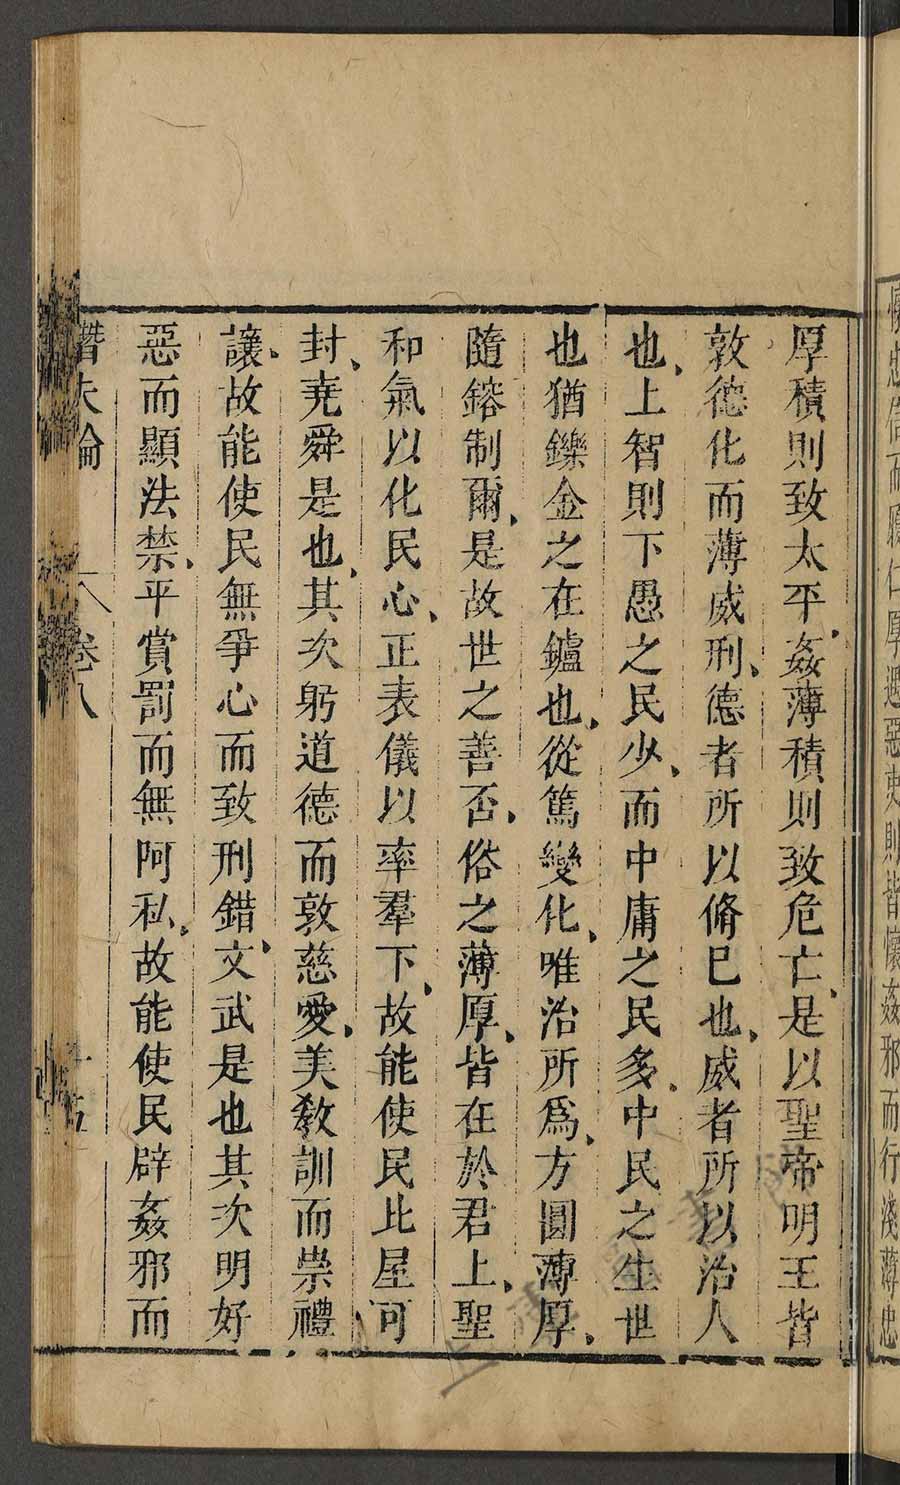 懷忠信而履仁厚遇惡吏則皆懷姦邪而行淺薄忠
厚積則致太平姦薄積則致危亡是以聖帝明王皆
敦德化而薄威刑德者所以脩己也威者所以治人
也上智則下愚之民少而中庸之民多中民之生世
也猶鑠金之在鑪也從篤變化唯冶所爲方圓薄厚
隨鎔制爾是故世之善否俗之薄厚皆在於君上聖
和氣以化民心正表儀以率羣下故能使民比屋可
封堯舜是也其次躬道德而敦慈愛美教訓而崇禮
讓故能使民無爭心而致刑錯文武是也其次明好
惡而顯法禁平賞罰而無阿私故能使民辟姦邪而
潛夫論 卷八